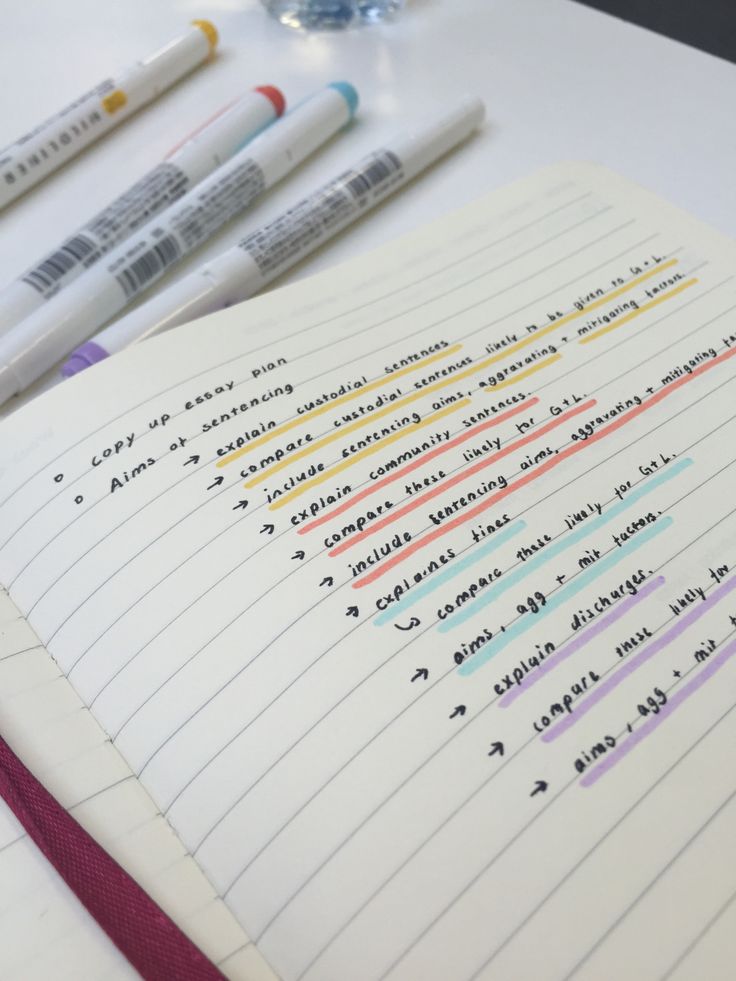 MILDLINER
o copy up essay plan
o Aims of sentencing
→ explain custodial sentences
→ compare custodial sentences likely to be given to G + L.
→ include sentencing aims, aggravating + mitigating factors.
→ explain community sentences.
→ compare these likely for G + L.
→ include sentencing aims, aggravating + mitigating
→ explaines fines
↳ compare these likely for G + L.
→ aims, agg + mit factors.
→ explain discharges.
→ compare these likely for
→ aims, agg + mit